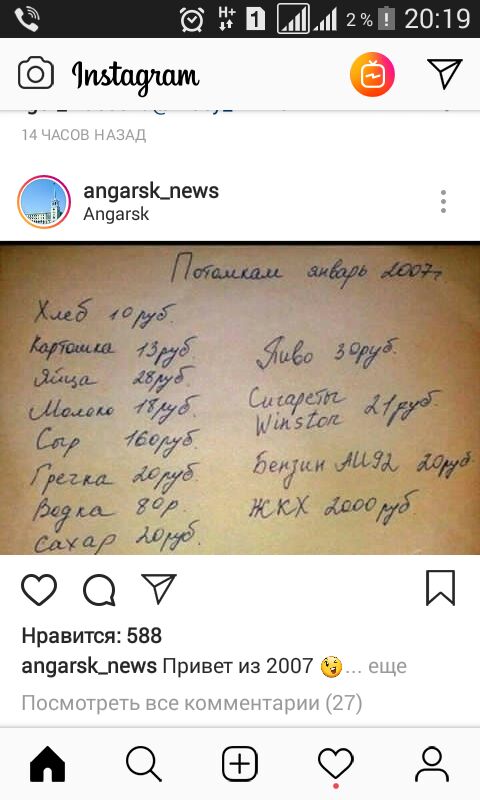 2 % 20:19
Instagram
14 ЧАСОВ НАЗАД
angarsk_news
Angarsk
Потомкам январь 2007г.
Хлеб 10руб.
Картошка 13руб.
Яйца 28руб.
Молоко 18руб.
Сыр 160руб.
Гречка 20руб.
Водка 80р.
Сахар 20руб.
Пиво 30руб.
Сигареты
Winston 21руб.
Бензин АИ92 20руб
ЖКХ 2000руб.
Нравится: 588
angarsk_news Привет из 2007 😉... еще
Посмотреть все комментарии (27)